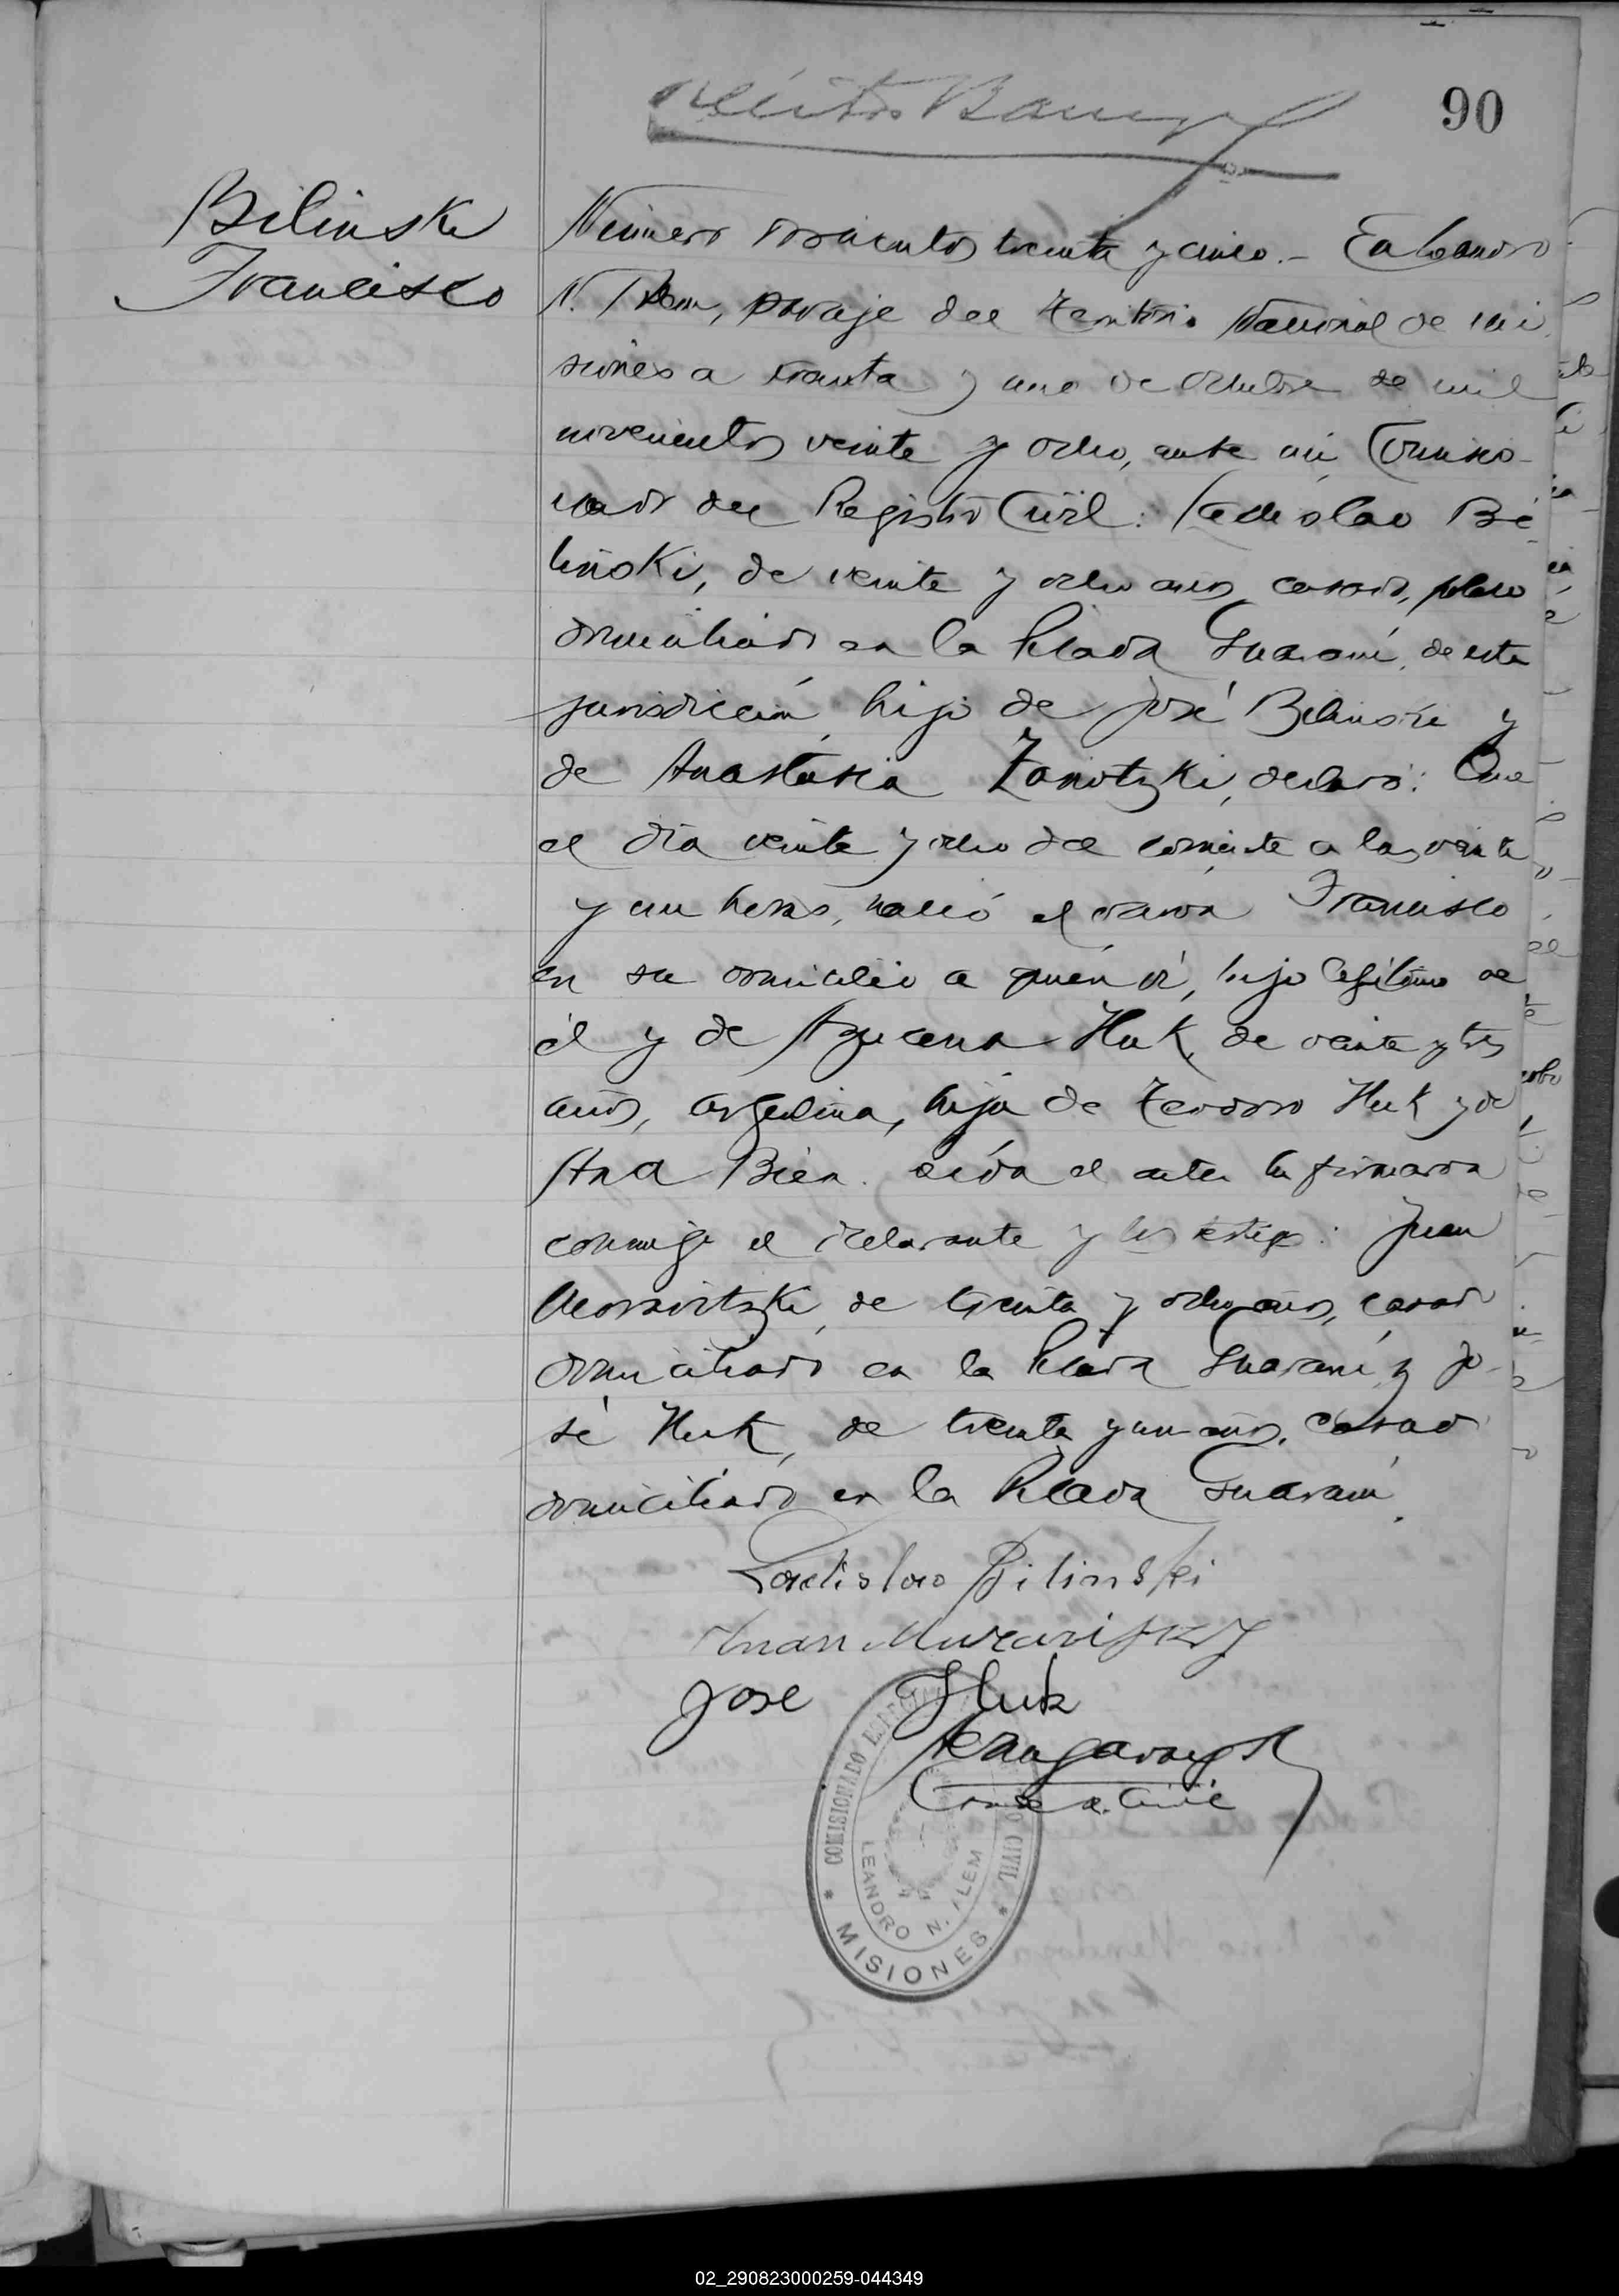 90
Bilinski
Francisco
Número doscientos treinta y cinco.- En Leandro
N. Alem, paraje del Territorio Nacional de Mi
siones a treinta y uno de Octubre de mil
novecientos veinte y ocho, ante mi Comisio-
nado del Registro Civil: Ladislao Bi-
linski, de veinte y ocho años, casado, polaco
domiciliado en la Picada Guaraní, de esta
jurisdicción, hijo de José Bilinski y
de Anastasia Zanotzki, declaró: Que
el día veinte y ocho del corriente a las veinte
y un horas, nació el varón Francisco
en su domicilio a quien ví, hijo legítimo de
él y de Azucena Huk, de veinte y tres
años, argentina, hija de Teodoro Huk y de
Ana Bien. Leída el acta la firmaron
conmigo el declarante y los testigos: Juan
Moravitzki, de treinta y ocho años, casado
domiciliado en la Picada Guaraní y Jo-
sé Huk, de treinta y un años, casado
domiciliado en la Picada Guaraní.
Ladislao Bilinski
Juan
Jose Huk
COMISIONADO CIVIL
LEANDRO N. ALEM
* MISIONES *
02_290823000259-044349